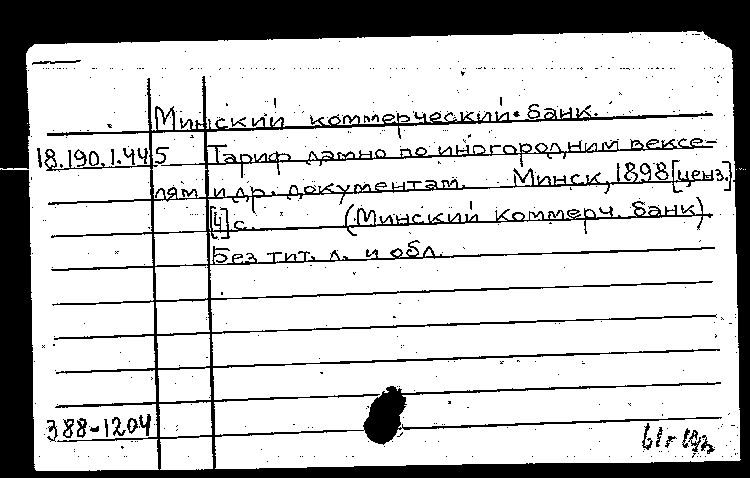 Минский коммерческий банк.
18.190.1.445 Тариф дамно по иногородним вексе-
лям и др. документам. Минск, 1898 [ценз.]
[4] с. (Минский коммерч. банк)
Без тит. л. и обл.
388-1204